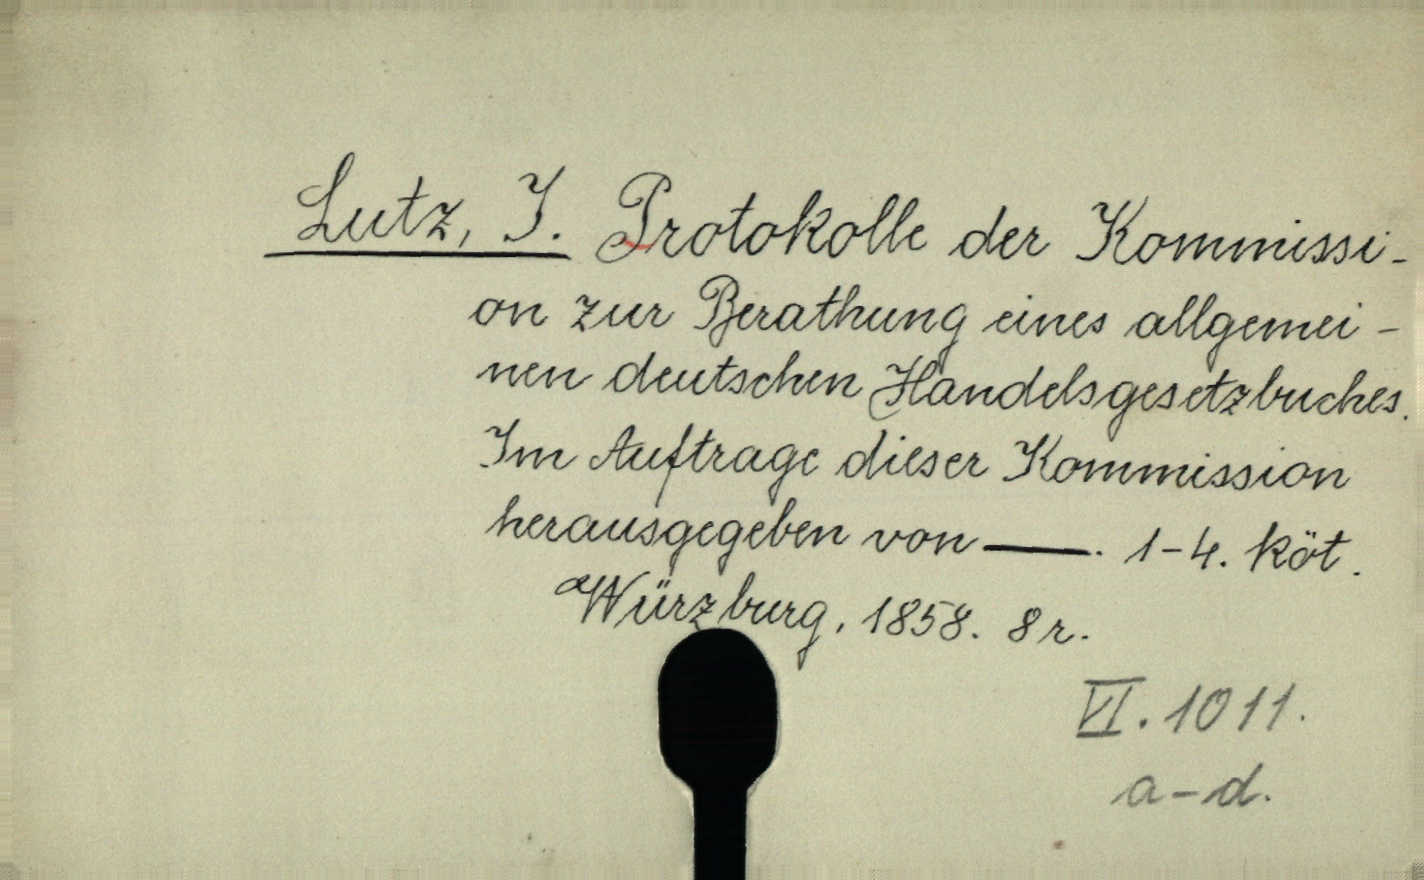 Lutz, J. Protokolle der Kommissi-
on zur Berathung eines allgemei-
nen deutschen Handelsgesetzbuches.
Im Auftrage dieser Kommission
herausgegeben von —. 1-4. köt.
Würzburg, 1858. 8r.
VI. 1011.
a-d.